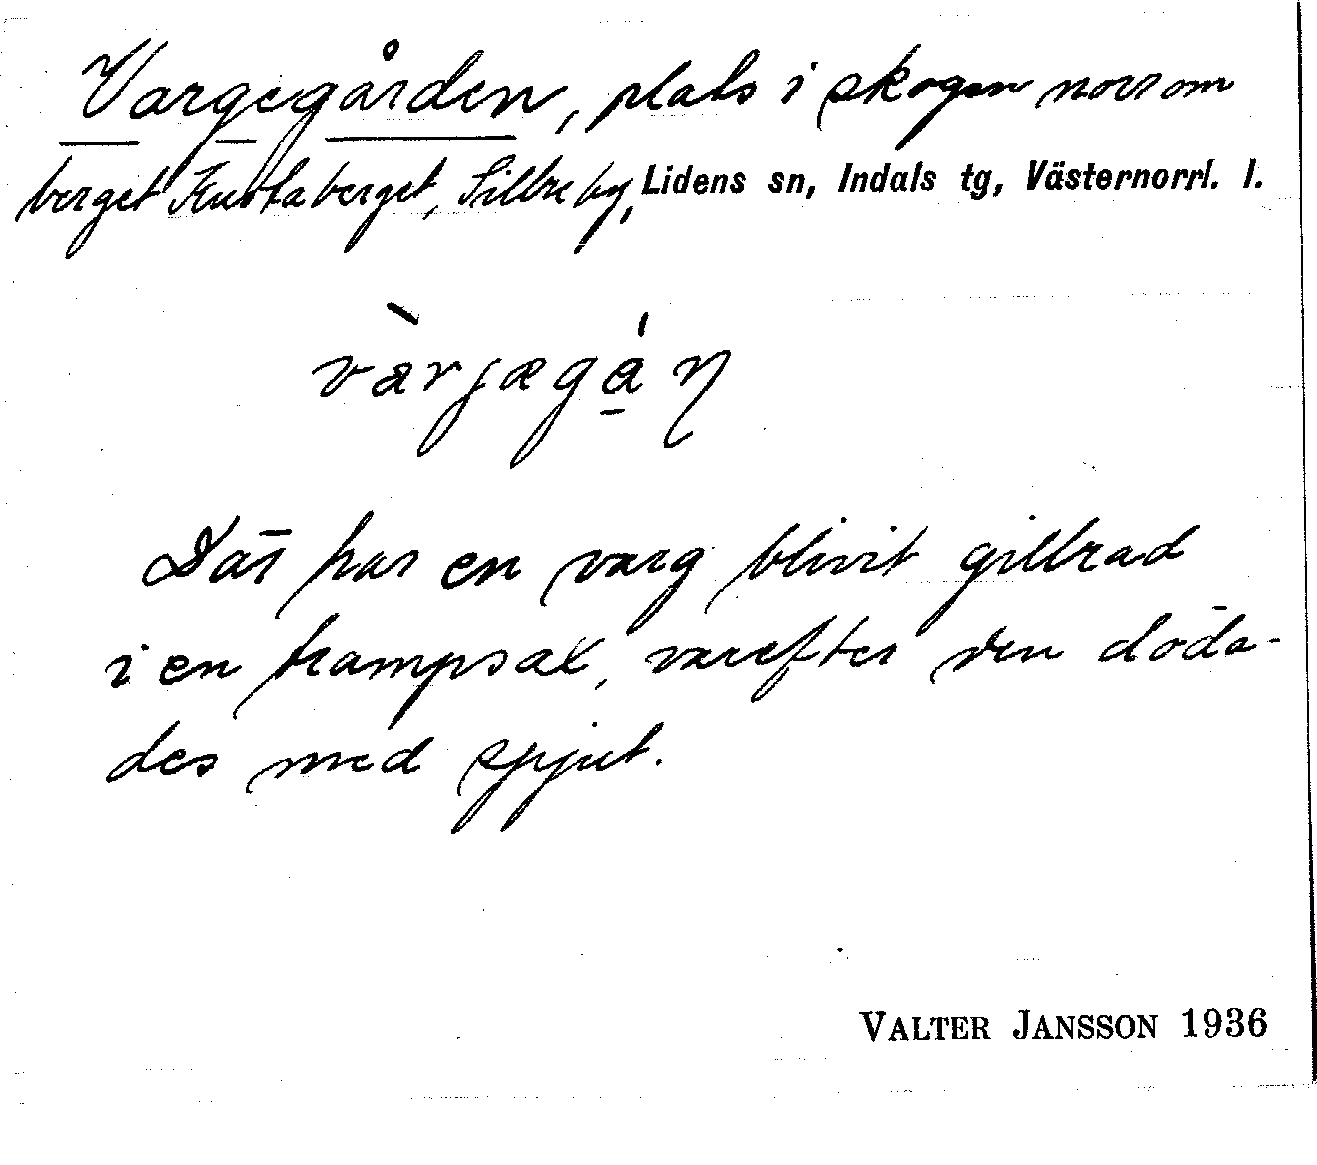 Vargegården, plats i skogen norr om
berget Knottaberget, Sillre by, Lidens sn, Indals tg, Västernorrl. l.
vàrjægá̱ɳ
Där har en varg blivit gillrad
i en trampsax, varefter den döda-
des med spjut.
VALTER JANSSON 1936